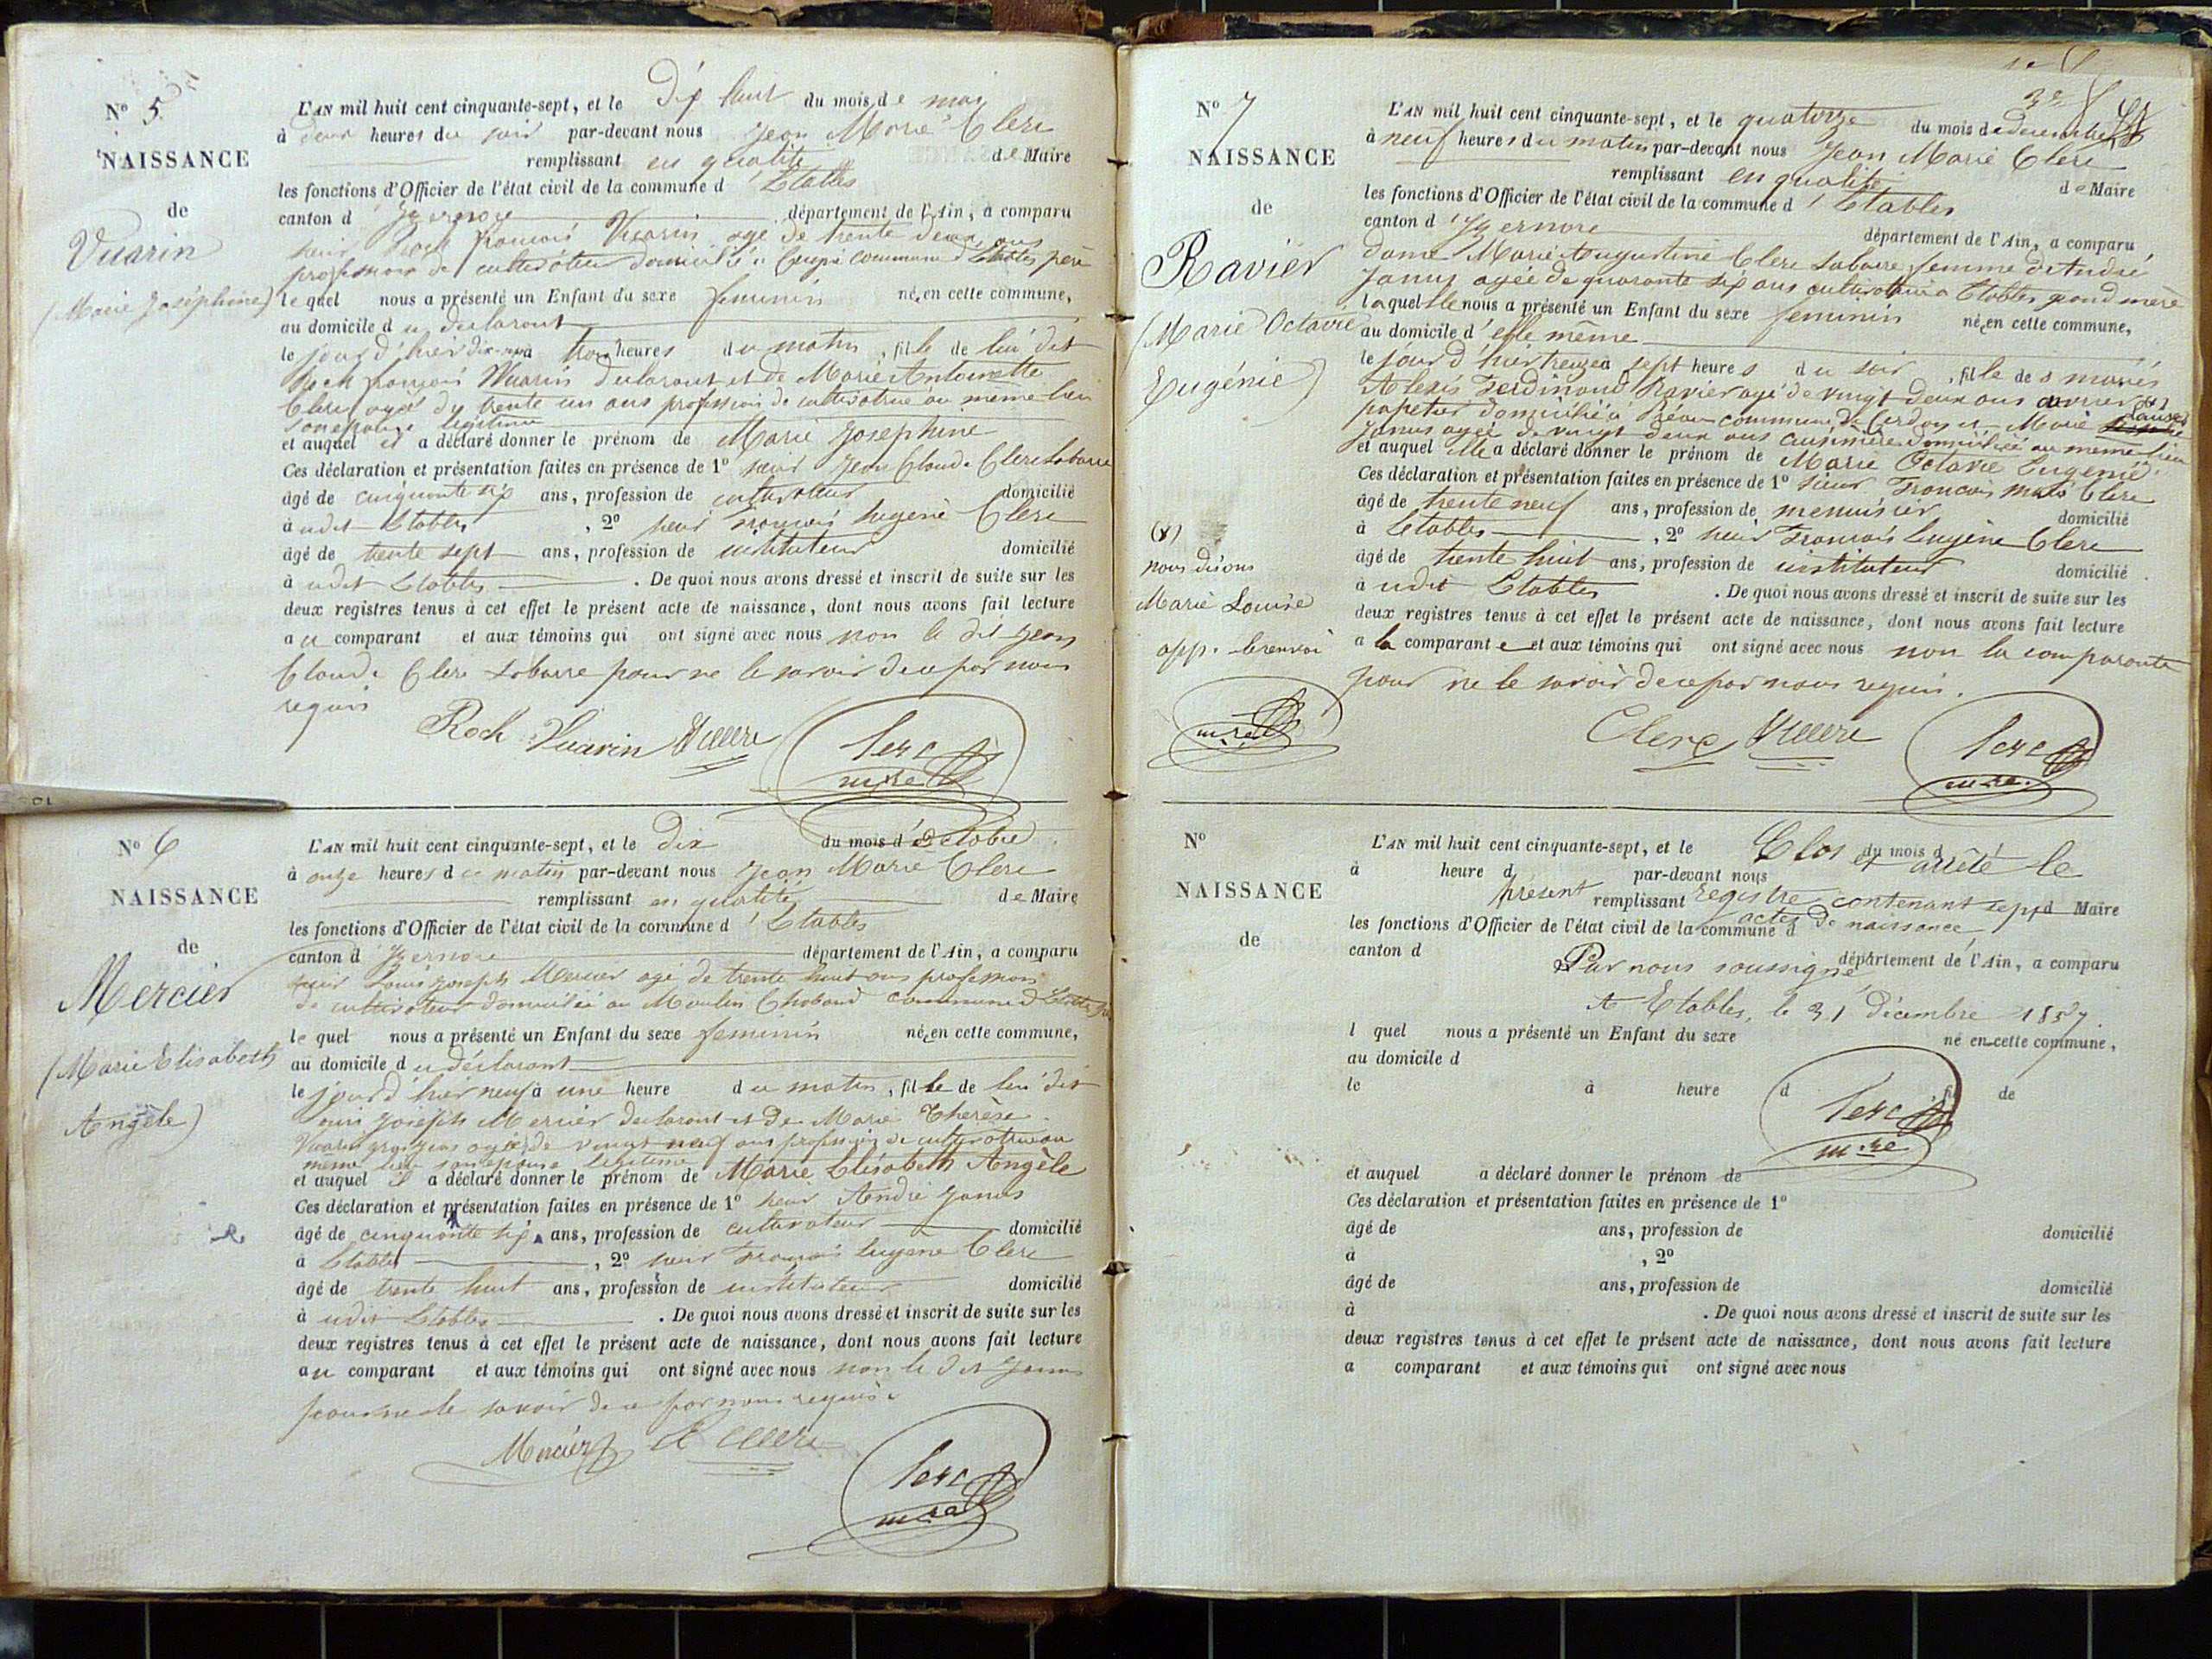 N° 5
NAISSANCE
de
Vuarin
(Marie Joséphine)
L'AN mil huit cent cinquante-sept, et le dix huit du mois de mai
à deux heures du soir par-devant nous Jean Marie Clerc
remplissant en qualité de Maire
les fonctions d'Officier de l'état civil de la commune d'Etables
canton d'Izernore département de l'Ain, a comparu
sieur Roch françois Vuarin agé de trente deux ans
profession de cultivateur domicilié à commune d'Etables père
lequel nous a présenté un Enfant du sexe feminin née en cette commune,
au domicile du declarant
le jour d'hier dix-sept à trois heures du matin, fille de lui dit
Roch françois Vuarin declarant et de Marie Antoinette
Clerc agée de trente un ans profession de cultivatrice au même lieu
son epouse légitime
et auquel il a déclaré donner le prénom de Marie Josephine
Ces déclaration et présentation faites en présence de 1° sieur Jean Claude Clerc Labarre
âgé de cinquante six ans, profession de cultivateur domicilié
à udit Etables, 2° sieur françois Eugène Clerc
âgé de trente sept ans, profession de instituteur domicilié
à udit Etables. De quoi nous avons dressé et inscrit de suite sur les
deux registres tenus à cet effet le présent acte de naissance, dont nous avons fait lecture
au comparant et aux témoins qui ont signé avec nous non le dit Jean
Claude Clerc Labarre pour ne le savoir de ce par nous
requis
Roch Vuarin Clerc Clerc
mre
N° 6
NAISSANCE
de
Mercier
(Marie Elisabeth
Angèle)
L'AN mil huit cent cinquante-sept, et le dix du mois d'octobre
à onze heures du matin par-devant nous Jean Marie Clerc
remplissant en qualité de Maire
les fonctions d'Officier de l'état civil de la commune d'Etables
canton d'Izernore département de l'Ain, a comparu
sieur Louis Joseph Mercier agé de trente huit ans profession
de cultivateur domicilié au Moulin Chaboud commune d'Etables
lequel nous a présenté un Enfant du sexe feminin née en cette commune,
au domicile du déclarant
le jour d'hier neuf à une heure du matin, fille de lui dit
Louis Joseph Mercier declarant et de Marie Therèse
Vuarin agée de vingt neuf ans profession de cultivatrice au
même lieu son epouse légitime
et auquel il a déclaré donner le prénom de Marie Elisabeth Angèle
Ces déclaration et présentation faites en présence de 1° sieur André Janus
âgé de cinquante six ans, profession de cultivateur domicilié
à Etables, 2° sieur François Eugène Clerc
âgé de trente huit ans, profession de instituteur domicilié
à udit Etables. De quoi nous avons dressé et inscrit de suite sur les
deux registres tenus à cet effet le présent acte de naissance, dont nous avons fait lecture
au comparant et aux témoins qui ont signé avec nous non le dit Janus
pour ne le savoir de ce par nous requis
Mercier Clerc Clerc
mre
N° 7
NAISSANCE
de
Ravier
(Marie Octavie
Eugénie)
L'AN mil huit cent cinquante-sept, et le quatorze du mois de decembre
à neuf heures du matin par-devant nous Jean Marie Clerc
remplissant en qualité de Maire
les fonctions d'Officier de l'état civil de la commune d'Etables
canton d'Izernore département de l'Ain, a comparu
dame Marie Augustine Clerc Labarre femme d'André
Janus agée de quarante six ans cultivatrice à Etables grand mère
laquelle nous a présenté un Enfant du sexe feminin née en cette commune,
au domicile d'elle même
le jour d'hier treize à sept heures du soir, fille des mariés
Alexis Ferdinand Ravier agé de vingt deux ans ouvrier
papetier domicilié à commune de Cerdon et Marie Louise (x)
Janus agée de vingt deux ans cuisinière domiciliée au même lieu
et auquel elle a déclaré donner le prénom de Marie Octavie Eugenie
Ces déclaration et présentation faites en présence de 1° sieur François Clerc
âgé de trente neuf ans, profession de menuisier domicilié
à Etables, 2° sieur François Eugène Clerc
âgé de trente huit ans, profession de instituteur domicilié
à udit Etables. De quoi nous avons dressé et inscrit de suite sur les
deux registres tenus à cet effet le présent acte de naissance, dont nous avons fait lecture
a la comparante et aux témoins qui ont signé avec nous non la comparante
pour ne le savoir de ce par nous requis.
(x)
nous disons
Marie Louise
app. le renvoi
mre
Clerc Clerc Clerc
mre
N°
NAISSANCE
de
L'AN mil huit cent cinquante-sept, et le du mois d
Clos et arrêté le
à heure d par-devant nous
présent registre contenant sept
remplissant d Maire
actes de naissance
les fonctions d'Officier de l'état civil de la commune d
canton d département de l'Ain, a comparu
Par nous soussigné
A Etables, le 31 décembre 1857.
l quel nous a présenté un Enfant du sexe né en cette commune,
au domicile d
le à heure d fil de
Clerc
mre
et auquel a déclaré donner le prénom de
Ces déclaration et présentation faites en présence de 1°
âgé de ans, profession de domicilié
à , 2°
âgé de ans, profession de domicilié
à . De quoi nous avons dressé et inscrit de suite sur les
deux registres tenus à cet effet le présent acte de naissance, dont nous avons fait lecture
a comparant et aux témoins qui ont signé avec nous